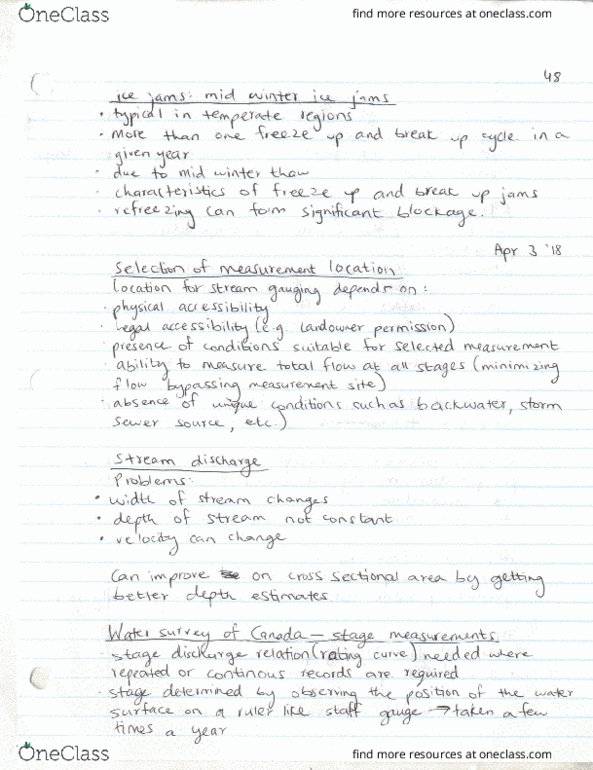 OneClass
find more resources at oneclass.com
48
ice jams: mid winter ice jams
• typical in temperate regions
• More than one freeze up and break up cycle in a
given year
• due to mid winter thaw
• characteristics of freeze up and break up jams
• refreezing can form significant blockage.
Apr 3 '18
Selection of measurement location
Location for stream gauging depends on:
• physical accessibility
• Legal accessibility (e.g. Landowner permission)
• presence of conditions suitable for selected measurement
• ability to measure total flow at all stages (minimizing
flow bypassing measurement site)
• absence of unique conditions such as backwater, storm
sewer source, etc.)
Stream discharge
Problems:
• width of stream changes
• depth of stream not constant
• velocity can change
Can improve on cross sectional area by getting
better depth estimates.
Water survey of Canada – stage measurements
• stage discharge relation (rating curve) needed where
repeated or continous records are required
• stage determined by observing the position of the water
surface on a ruler like staff gauge → taken a few
times a year
OneClass
find more resources at oneclass.com